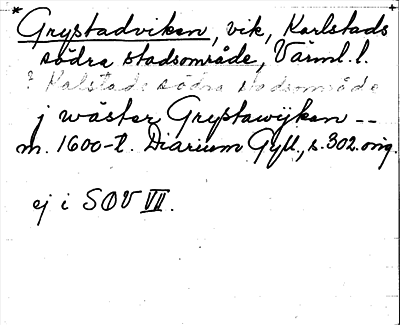 * Grystadviken, vik, Karlstads +
södra stadsområde, Värml. l.
? Kalstads södra stadsområde
j wäster Grystawijken --
m. 1600-t. Diarium Gyll., s. 302. orig.
ej i SOV VII.